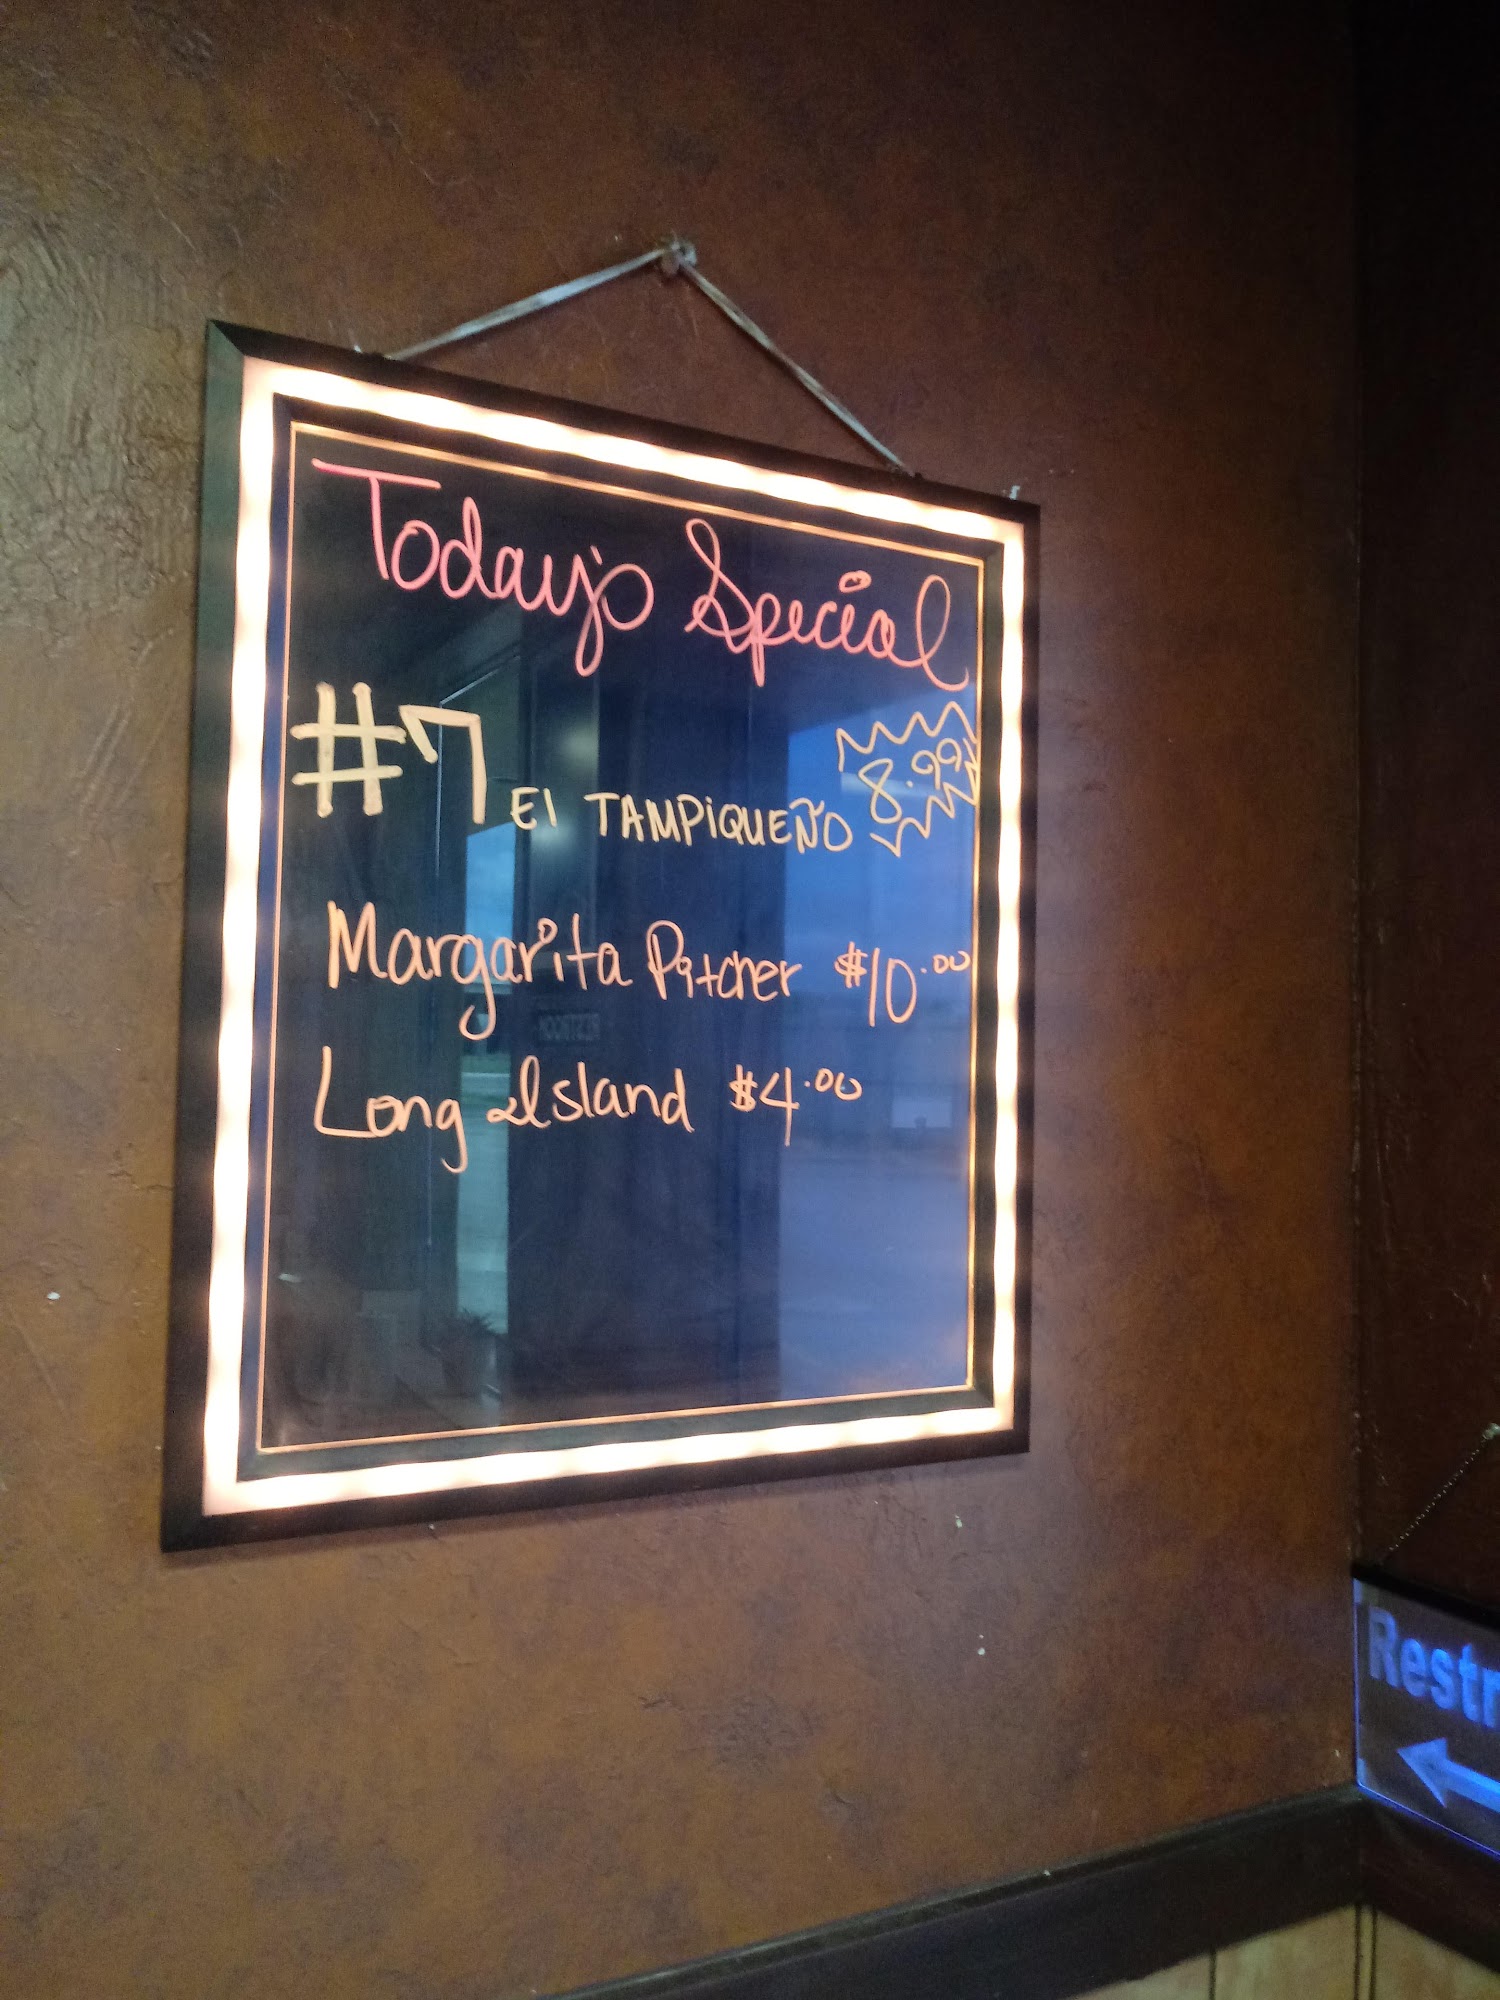 Today's Special
#7 El TAMPiQUEÑO 8.99
Margarita Pitcher $10.00
Long Island $4.00
Restr